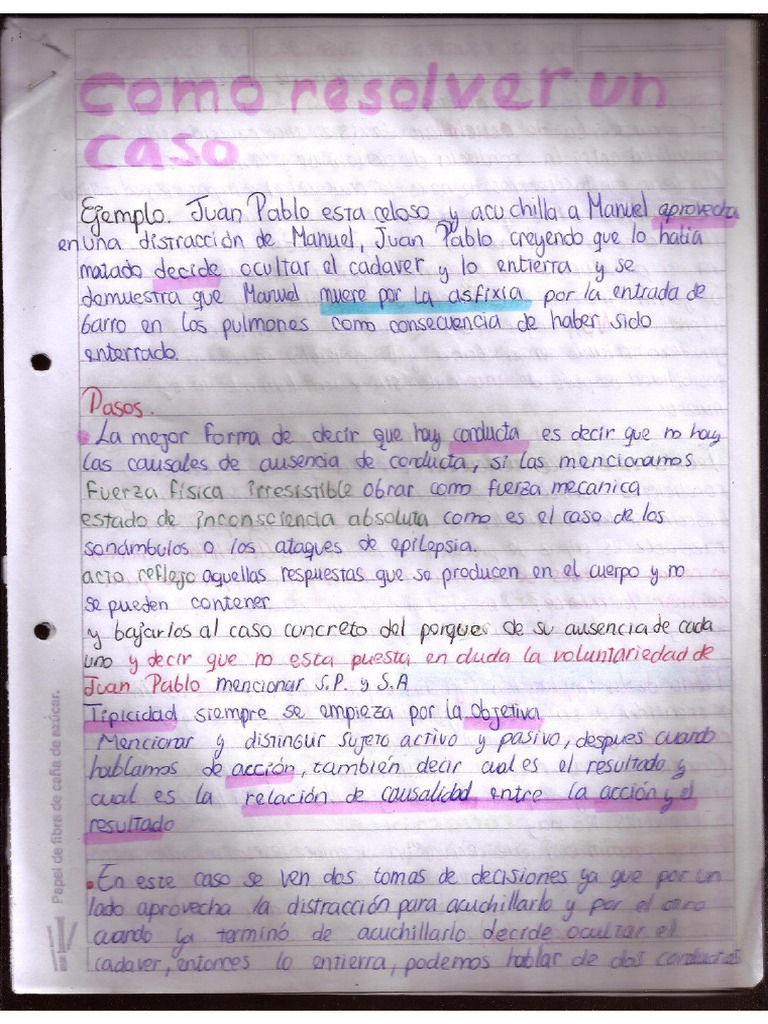 Como resolver un
caso
Ejemplo. Juan Pablo esta celoso y acuchilla a Manuel aprovecha
en una distracción de Manuel, Juan Pablo creyendo que lo habia
matado decide ocultar el cadaver y lo entierra y se
demuestra que Manuel muere por la asfixia por la entrada de
barro en los pulmones como consecuencia de haber sido
enterrado.
Pasos.
La mejor forma de decir que hay conducta es decir que no hay
las causales de ausencia de conducta, si las mencionamos
Fuerza física irresistible obrar como fuerza mecanica
estado de inconsciencia absoluta como es el caso de los
sonámbulos o los ataques de epilepsia.
acto reflejo aquellas respuestas que se producen en el cuerpo y no
se pueden contener
y bajarlos al caso concreto del porque de su ausencia de cada
uno y decir que no esta puesta en duda la voluntariedad de
Juan Pablo mencionar S.P. y S.A
Tipicidad siempre se empieza por la Objetiva
Mencionar y distinguir sujeto activo y pasivo, despues cuando
hablamos de acción, también decir cual es el resultado y
cual es la relación de causalidad entre la acción y el
resultado
En este caso se ven dos tomas de decisiones ya que por un
lado aprovecha la distracción para acuchillarlo y por el otro
cuando ya terminó de acuchillarlo decide ocultar el
cadaver, entonces lo entierra, podemos hablar de dos conductas
Papel de fibra de caña de azúcar.